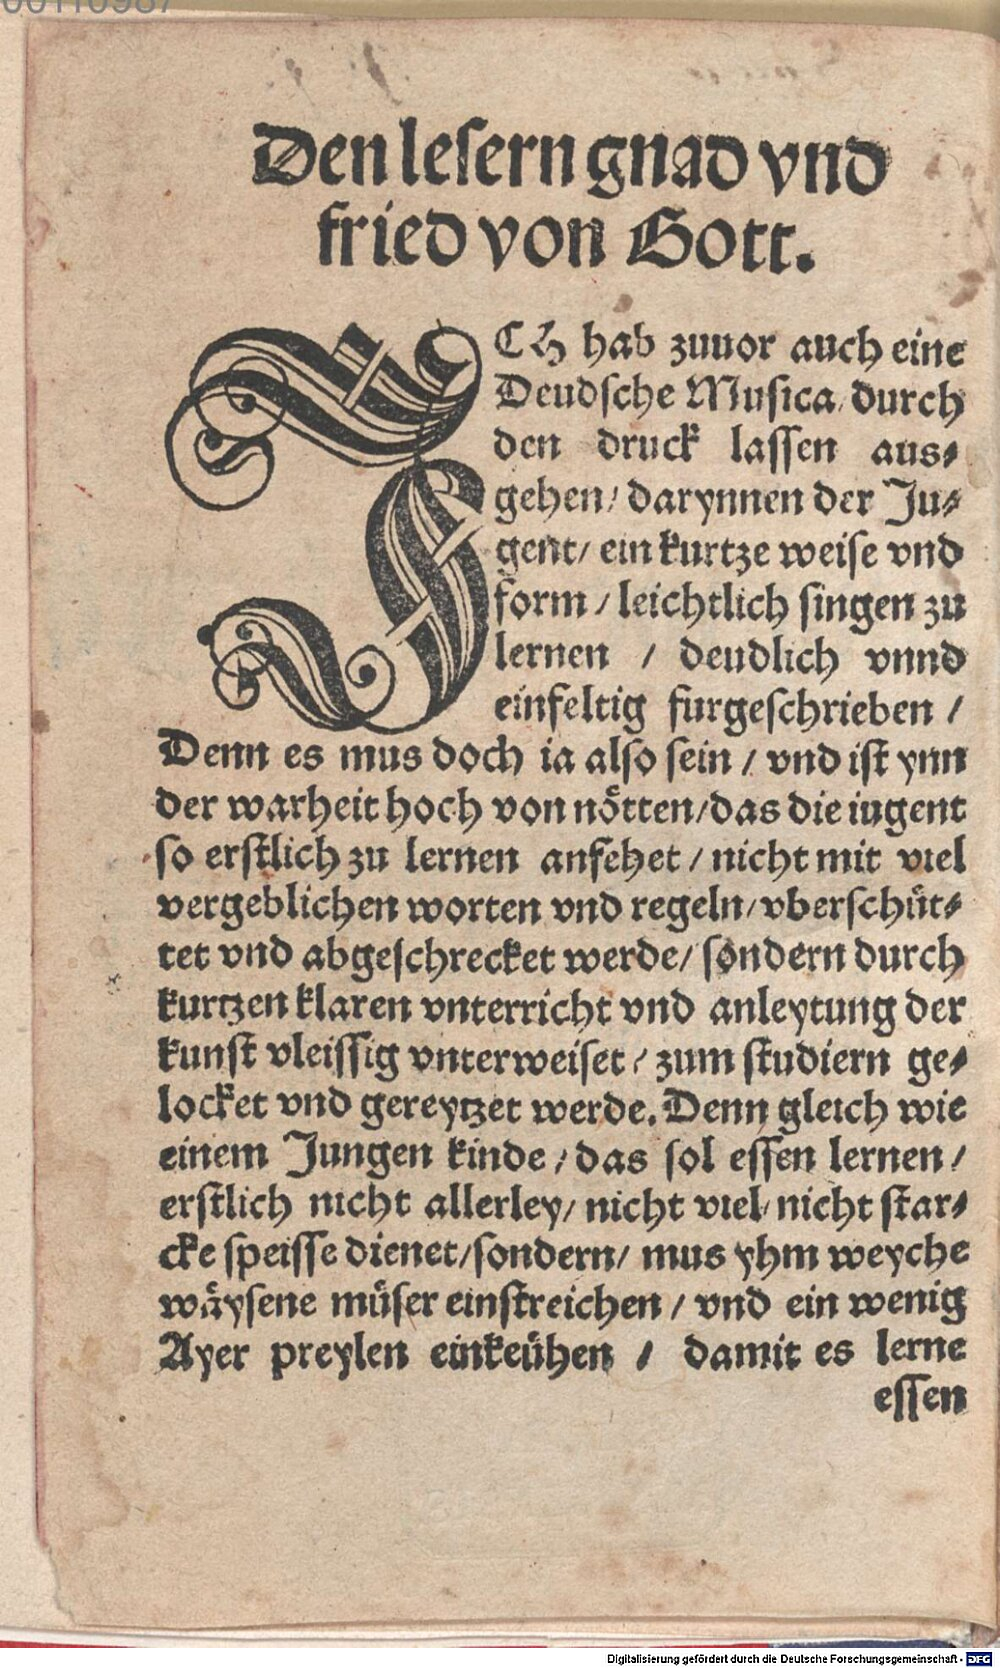 Den lesern gnad vnd
fried von Gott.
ICH hab zuuor auch eine
Deudsche Musica durch
den druck lassen aus⸗
gehen/ darynnen der Ju⸗
gent/ ein kurtze weise vnd
form / leichtlich singen zu
lernen / deudlich vnnd
einfeltig furgeschrieben /
Denn es mus doch ia also sein / vnd ist ynn
der warheit hoch von nötten/das die iugent
so erstlich zu lernen anfehet / nicht mit viel
vergeblichen worten vnd regeln/vberschüt⸗
tet vnd abgeschrecket werde/ sondern durch
kurtzen klaren vnterricht vnd anleytung der
kunst vleissig vnterweiset / zum studiern ge⸗
locket vnd gereytzet werde. Denn gleich wie
einem Jungen kinde / das sol essen lernen /
erstlich nicht allerley/ nicht viel/ nicht star⸗
cke speisse dienet/sondern/ mus yhm weyche
wäysene müser einstreichen / vnd ein wenig
Ayer preylen einkeühen / damit es lerne
essen
Digitalisierung gefördert durch die Deutsche Forschungsgemeinschaft - DFG